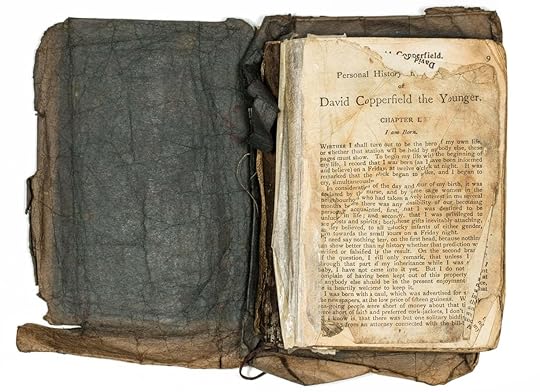 Copperfield.
David
9
Personal History
of
David Copperfield the Younger.
CHAPTER I.
I am Born.
WHETHER I shall turn out to be the hero of my own life,
or whether that station will be held by anybody else, these
pages must show. To begin my life with the beginning of
my life, I record that I was born (as I have been informed
and believe) on a Friday, at twelve o'clock at night. It was
remarked that the clock began to strike, and I began to
cry, simultaneously.
In consideration of the day and hour of my birth, it was
declared by the nurse, and by some sage women in the
neighbourhood who had taken a lively interest in me several
months before there was any possibility of our becoming
personally acquainted, first, that I was destined to be
unlucky in life; and secondly, that I was privileged to
see ghosts and spirits; both these gifts inevitably attaching,
as they believed, to all unlucky infants of either gender,
born towards the small hours on a Friday night.
I need say nothing here, on the first head, because nothing
can show better than my history whether that prediction w
verified or falsified by the result. On the second bran
of the question, I will only remark, that unless I
through that part of my inheritance while I was
baby, I have not come into it yet. But I do not
complain of having been kept out of this property
anybody else should be in the present enjoyment
he is heartily welcome to keep it.
I was born with a caul, which was advertised for s
the newspapers, at the low price of fifteen guineas. W
sea-going people were short of money about that ti
were short of faith and preferred cork-jackets, I don't
I know is, that there was but one solitary biddi
from an attorney connected with the bill-b